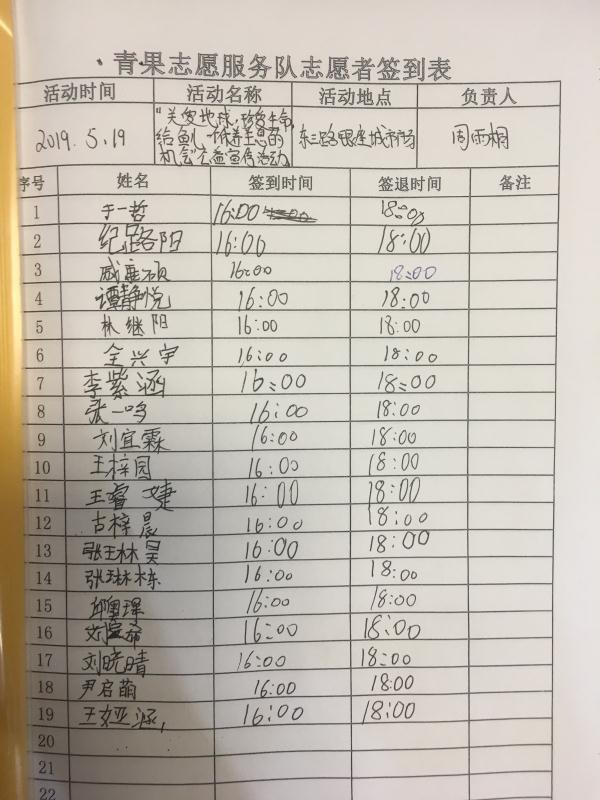 青果志愿服务队志愿者签到表
活动时间 活动名称 活动地点 负责人
2019.5.19 "关爱地球,珍爱生命, 东三路银座城市市场 周雨桐
给 一休养生息的
机会"公益宣传活动
序号 姓名 签到时间 签退时间 备注
1 于一哲 16:00 18:00
2 纪路阳 16:00 18:00
3 戚 硕 16:00 18:00
4 谭静悦 16:00 18:00
5 林继阳 16:00 18:00
6 全兴宇 16:00 18:00
7 李紫涵 16:00 18:00
8 张一鸣 16:00 18:00
9 刘宜霖 16:00 18:00
10 王梓园 16:00 18:00
11 王睿婕 16:00 18:00
12 古梓晨 16:00 18:00
13 张王林昊 16:00 18:00
14 张琳栋 16:00 18:00
15 邱 16:00 18:00
16 16:00 18:00
17 刘晓晴 16:00 18:00
18 尹启萌 16:00 18:00
19 王娅涵 16:00 18:00
20
21
22